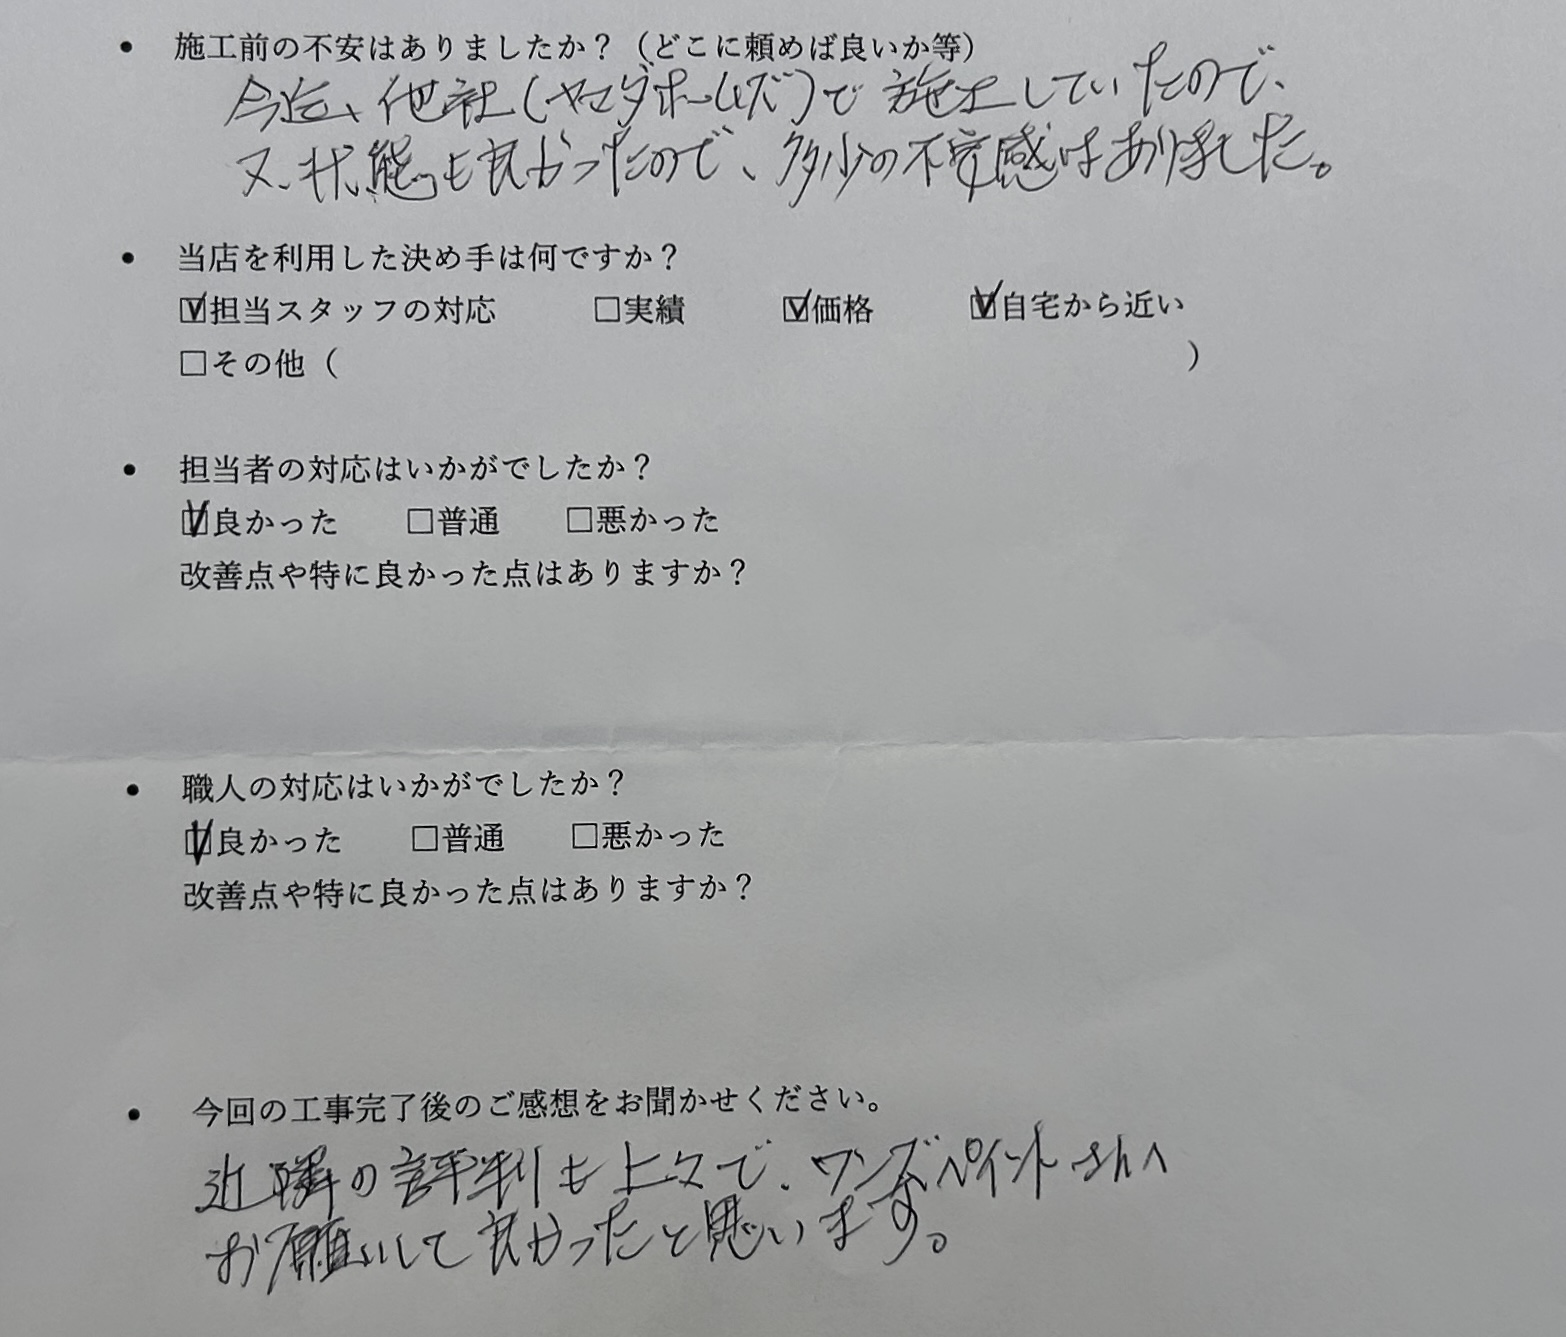 • 施工前の不安はありましたか？（どこに頼めば良いか等）
今迄、他社(ヤマダホームズ)で施工していたので、
又、状態も良かったので、多少の不安感はありました。
• 当店を利用した決め手は何ですか？
☑担当スタッフの対応 □実績 ☑価格 ☑自宅から近い
□その他（ ）
• 担当者の対応はいかがでしたか？
☑良かった □普通 □悪かった
改善点や特に良かった点はありますか？
• 職人の対応はいかがでしたか？
☑良かった □普通 □悪かった
改善点や特に良かった点はありますか？
• 今回の工事完了後のご感想をお聞かせください。
近隣の評判も上々で、ワンズペイントさんへ
お願いして良かったと思います。